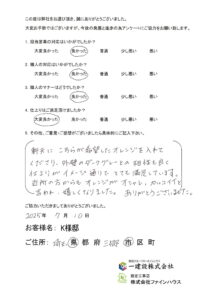 この度は弊社をお選び頂き、誠にありがとうございました。
大変お手数ではございますが、今後の発展と進歩の為アンケートにご協力をお願い致します。
1. 担当営業の対応はいかがでしたか？
大変良かった 良かった 普通 少し悪い 悪い
2. 職人の対応はいかがでしたか？
大変良かった 良かった 普通 少し悪い 悪い
3. 職人のマナーはどうでしたか？
大変良かった 良かった 普通 少し悪い 悪い
4. 仕上りはご満足頂けましたか？
大変良かった 良かった 普通 少し悪い 悪い
5. その他、ご意見・ご感想がございましたら具体的にご記入下さい。
軒天に こちらが希望した オレンジを入れて
くださり、外壁のダークグレーとの 相性も良く
仕上りがイメージ通りで とても満足しています。
近所の方からも オレンジが オシャレ、カッコイイと
言われ、嬉しくなりました。ありがとうございました。
ご協力いただきましてありがとうございました。
2025年 7月 10日
お客様名: K様邸
ご住所: 埼玉 県 都 府 市 区 町
一建設株式会社
施工工事店
株式会社ファインハウス